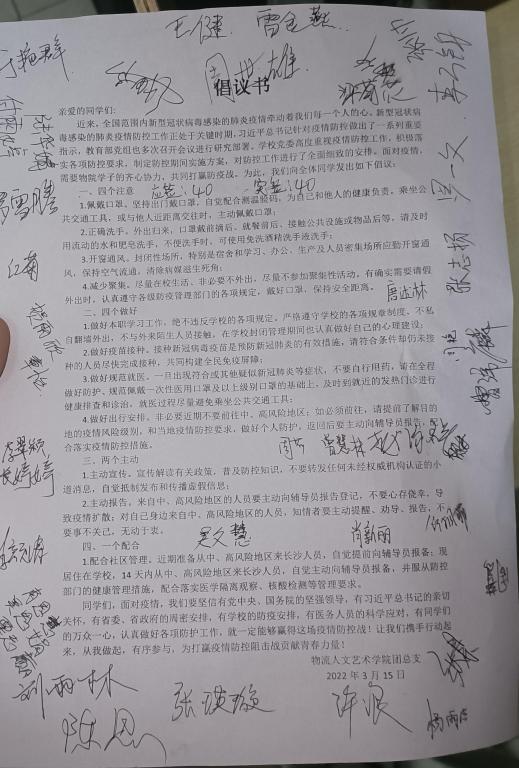 王健
周世雄
倡议书
亲爱的同学们:
近来,全国范围内新型冠状病毒感染的肺炎疫情牵动着我们每一个人的心。新型冠状病
毒感染的肺炎疫情防控工作正处于关键时期,习近平总书记针对疫情防控做出了一系列重要
指示,教育部党组也多次召开会议进行研究部署。学校党委高度重视疫情防控工作,积极落
实各项防控要求,制定防控期间实施方案,对防控工作进行了全面细致的安排。面对疫情,
需要物院学子的齐心协力、共同打赢防疫战。为此,我们向全体同学发出如下倡议:
一、四个注意 应签:40 实签:40
1.佩戴口罩。坚持出门戴口罩,自觉配合测温验码,为自己和他人的健康负责。乘坐公
共交通工具,或与他人近距离交往时,主动佩戴口罩;
2.正确洗手。外出归来,口罩戴前摘后,就餐前后、接触公共设施或物品后等,请及时
用流动的水和肥皂洗手,不便洗手时,可使用免洗酒精洗手液洗手;
3.开窗通风。封闭性场所,特别是宿舍和学习、办公、生产及人员密集场所应勤开窗通
风,保持空气流通,清除病媒滋生死角;
4.减少聚集。尽量在校生活、非必要不外出,尽量不参加聚集性活动,有确实需要请假
外出时,认真遵守各级防疫管理部门的各项规定,戴好口罩,保持安全距离。
二、四个做好
1.做好本职学习工作,绝不违反学校的各项规定。严格遵守学校的各项规章制度,不私
自翻墙外出,不与外来陌生人员接触。在学校封闭管理期间也认真做好自己的心理建设;
2.做好疫苗接种。接种新冠病毒疫苗是预防新冠肺炎的有效措施,请符合条件却仍未接
种的人员尽快完成接种,共同构建全民免疫屏障;
3.做好规范就医。一旦出现符合或其他疑似新冠肺炎等症状,不要自行用药,请在全程
做好防护、规范佩戴一次性医用口罩及以上级别口罩的基础上,及时到就近的发热门诊进行
健康排查和诊治,就医过程尽量避免乘坐公共交通工具;
4.做好出行安排。非必要近期不要前往中、高风险地区;如必须前往,请提前了解目的
地的疫情风险级别,和当地疫情防控要求,做好个人防护,返回后要主动向辅导员报告,配
合落实疫情防控措施。
三、两个主动
1.主动宣传。宣传解读有关政策,普及防控知识,不要转发任何未经权威机构认证的小
道消息,自觉抵制发布和传播虚假信息;
2.主动报告,来自中、高风险地区的人员要主动向辅导员报告登记,不要心存侥幸,导
致疫情扩散;对自己身边来自中、高风险地区的人员,知情者要主动提醒、劝导、报告,不
要事不关己,无动于衷。
肖新丽
四、一个配合
1.配合社区管理。近期准备从中、高风险地区来长沙人员,自觉提前向辅导员报备;现
居住在学校,14 天内从中、高风险地区来长沙人员,自觉主动向辅导员报备,并服从防控
部门的健康管理措施,配合落实医学隔离观察、核酸检测等管理要求。
同学们,面对疫情,我们要坚信有党中央、国务院的坚强领导,有习近平总书记的亲切
关怀,有省委、省政府的周密安排,有学校的防疫安排,有医务人员的科学应对,有同学们
的万众一心,认真做好各项防护工作,就一定能够赢得这场疫情防控战!让我们携手行动起
来,从我做起,有序参与,为打赢疫情防控阻击战贡献青春力量!
物流人文艺术学院团总支
2022 年 3 月 15 日
刘雨林